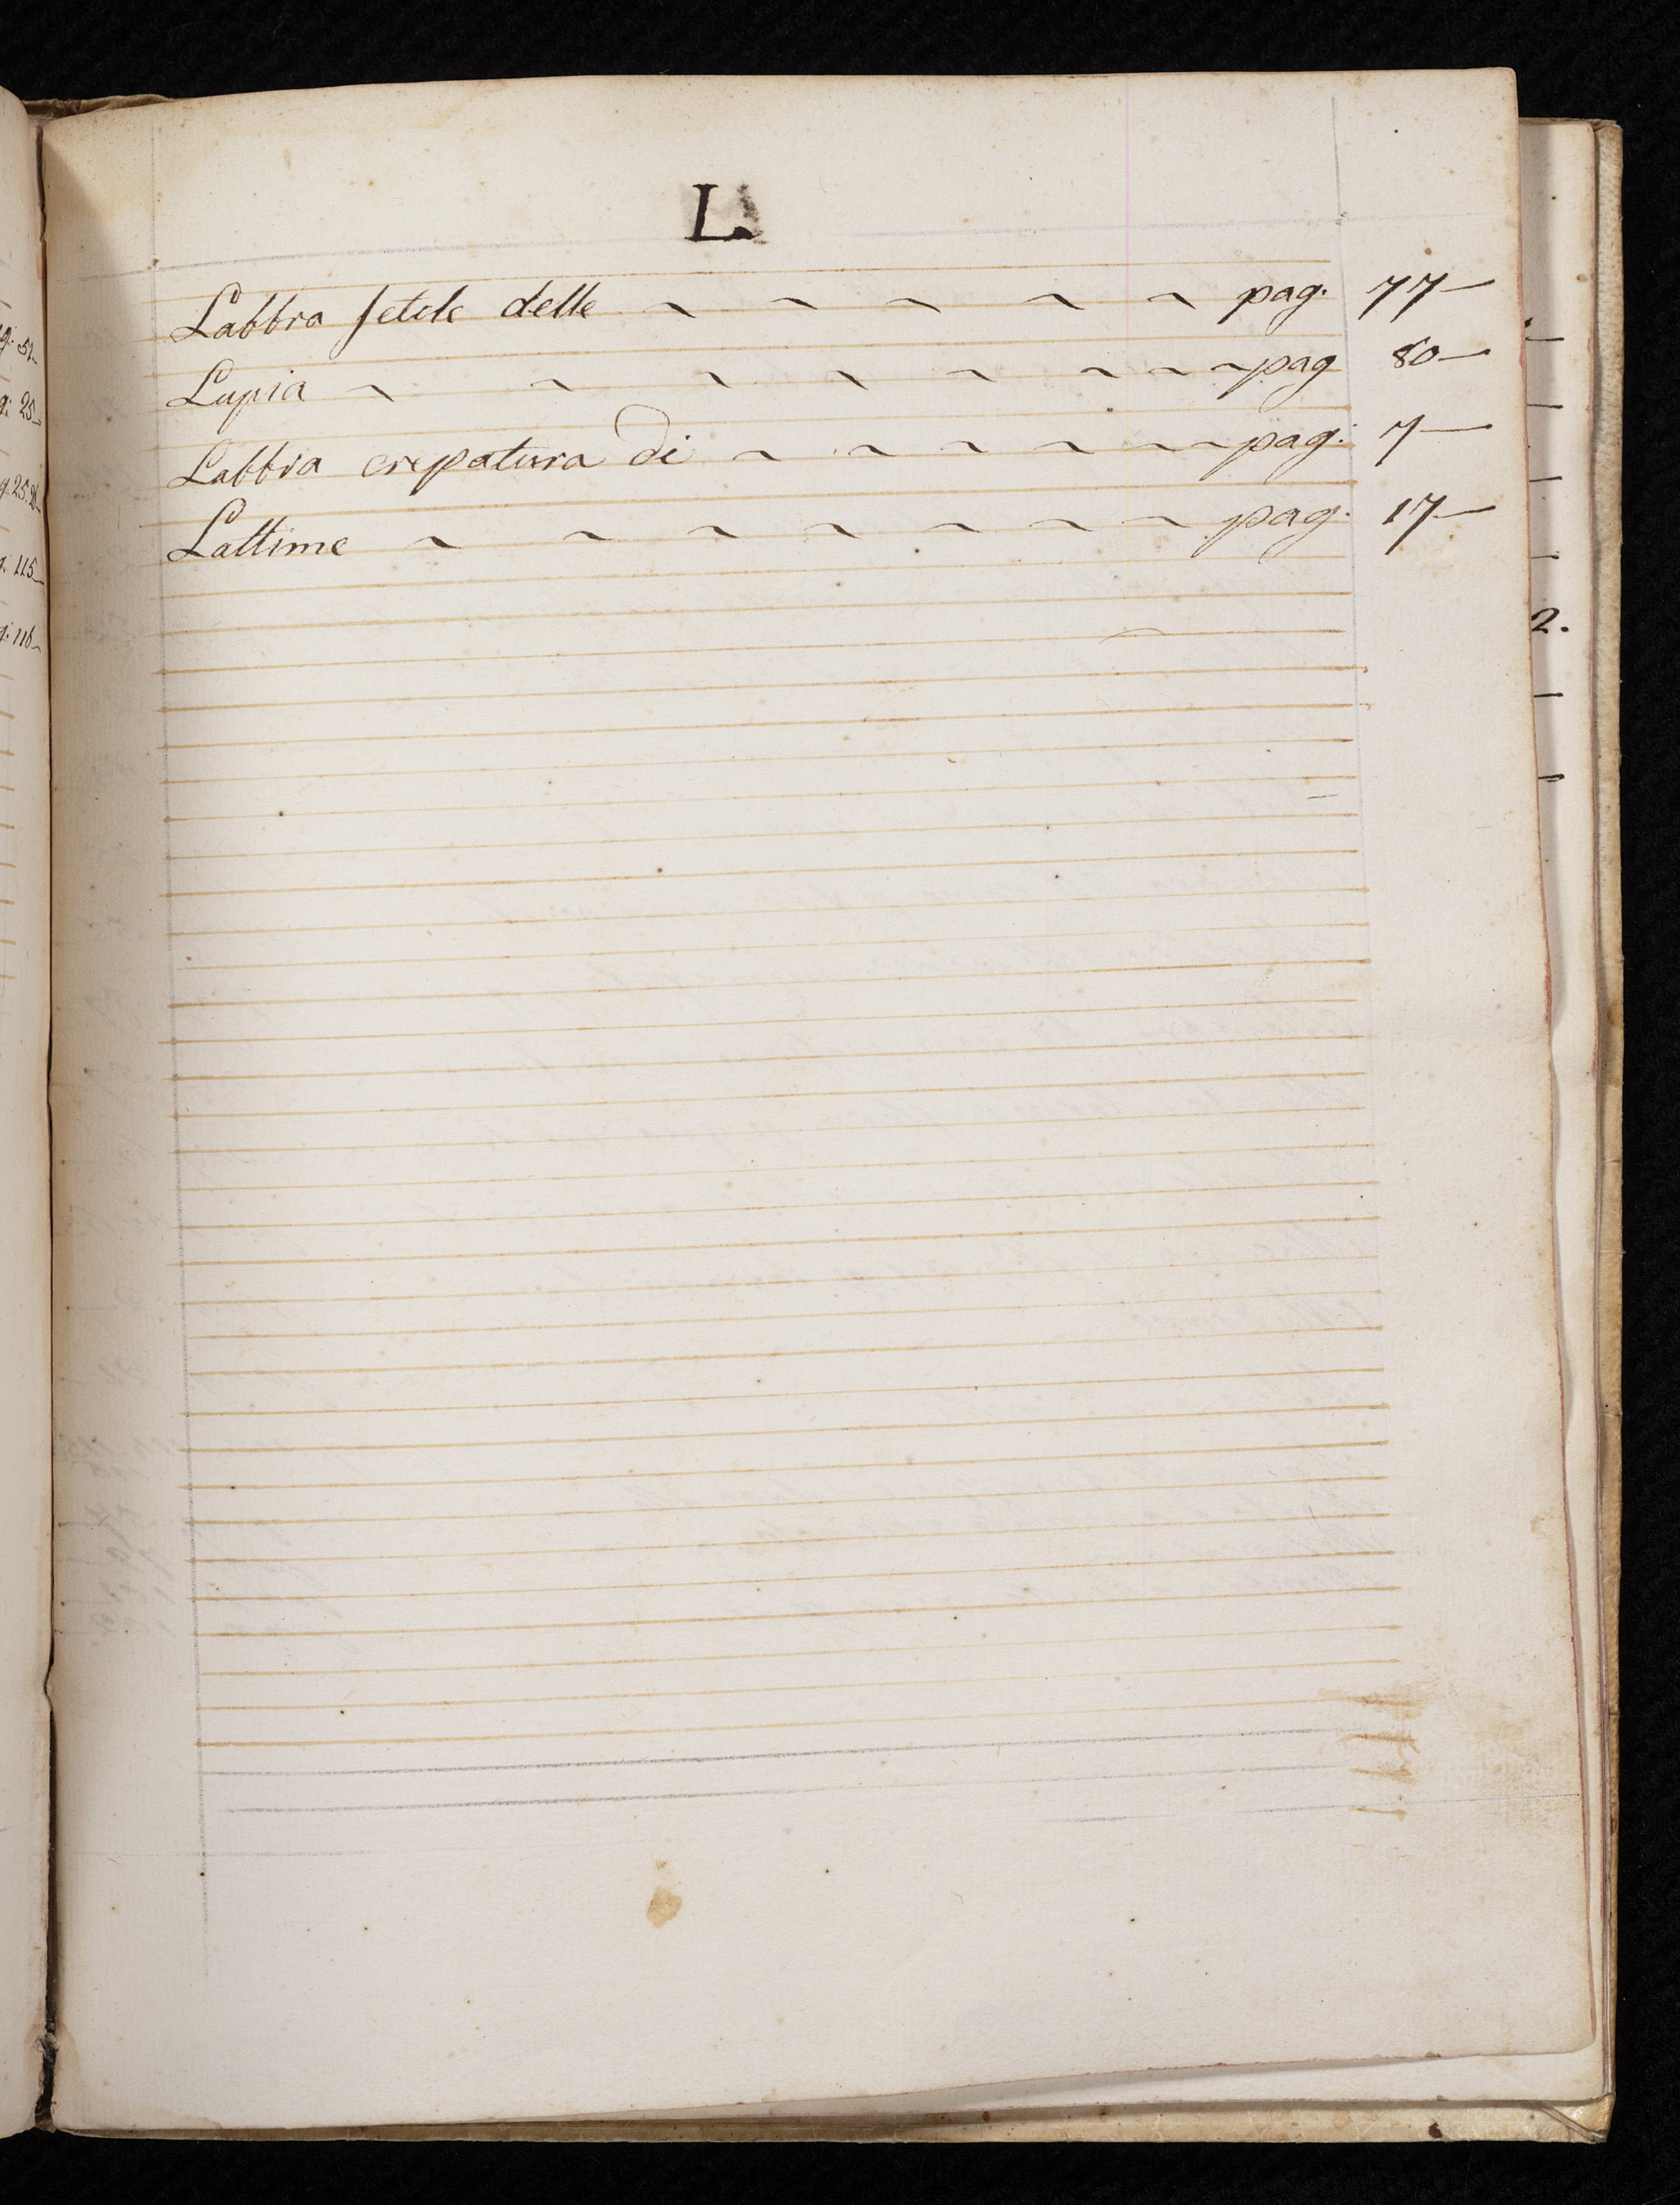 L.
Labbra setole delle ~ ~ ~ ~ ~ pag. 77—
Lupia ~ ~ ~ ~ ~ ~ ~ ~ pag 80—
Labbra crepatura di ~ ~ ~ ~ ~ ~ pag. 7—
Lattime ~ ~ ~ ~ ~ ~ ~ pag. 17—
g. 51—
g. 25—
g. 25.26—
g. 115—
g. 116—
2.